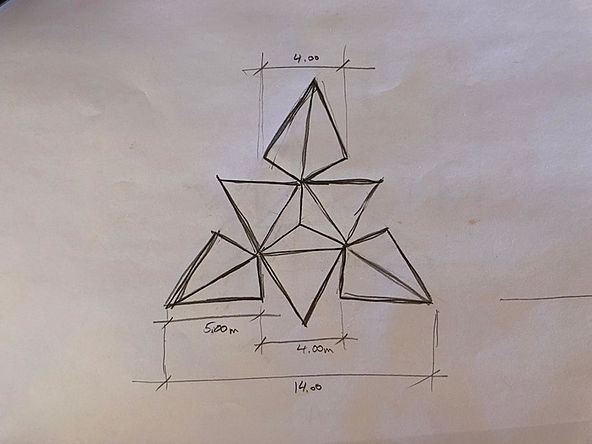 4.00
5.00m
4.00m
14.00